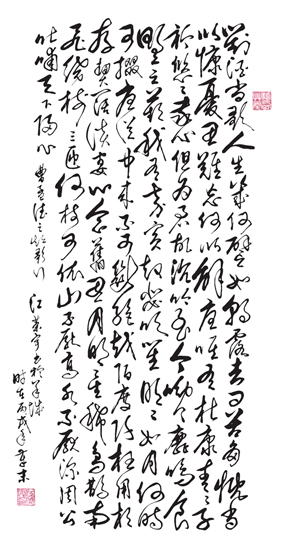 對酒當歌人生幾何譬如朝露去日苦多慨當
以慷憂思難忘何以解憂唯有杜康青青子
衿悠悠我心但為君故沉吟至今呦呦鹿鳴食
野之蘋我有嘉賓鼓瑟吹笙明明如月何時
可掇憂從中來不可斷絕越陌度阡枉用相
存契闊談宴心念舊恩月明星稀烏鵲南
飛繞樹三匝何枝可依山不厭高水不厭深周公
吐哺天下歸心 曹孟德之短歌行 江書於羊城
時在丙戌年末